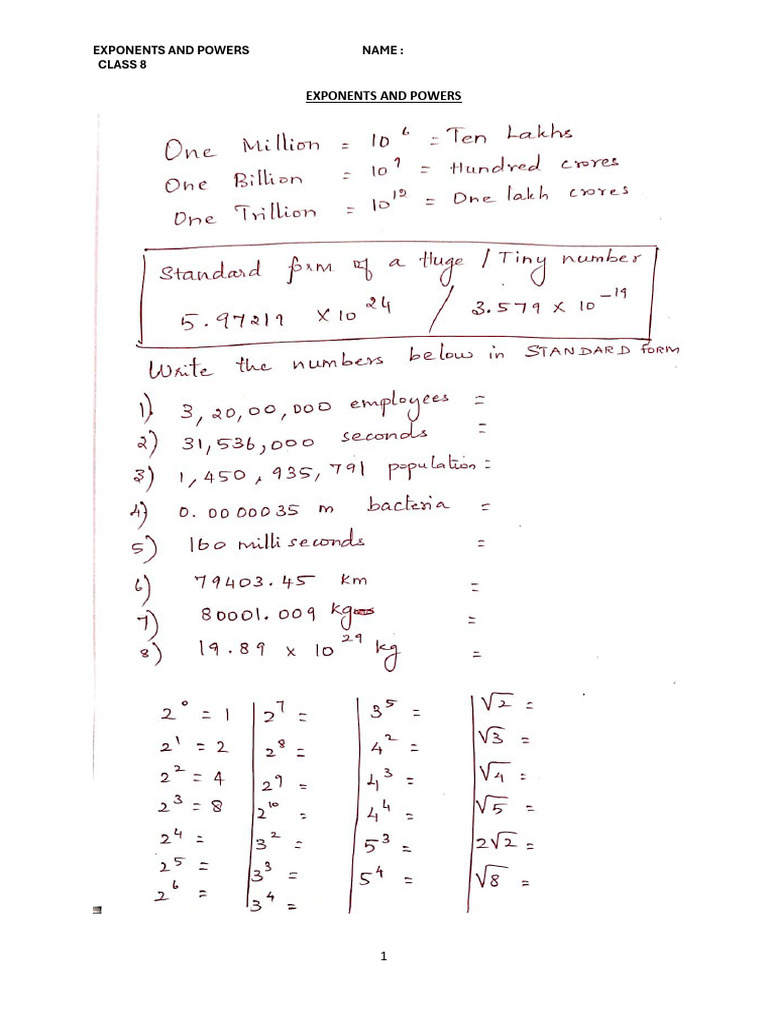 EXPONENTS AND POWERS NAME :
CLASS 8
EXPONENTS AND POWERS
One Million = 10⁶ = Ten Lakhs
One Billion = 10⁹ = Hundred crores
One Trillion = 10¹² = One lakh crores
Standard form of a Huge / Tiny number
5.97219 × 10²⁴ / 3.579 × 10⁻¹⁹
Write the numbers below in STANDARD FORM
1) 3,20,00,000 employees =
2) 31,536,000 seconds =
3) 1,450,935,791 population =
4) 0.0000035 m bacteria =
5) 160 milli seconds =
6) 79403.45 km =
7) 80001.009 kg =
8) 19.89 × 10²⁹ kg =
2⁰ = 1
2¹ = 2
2² = 4
2³ = 8
2⁴ =
2⁵ =
2⁶ =
2⁷ =
2⁸ =
2⁹ =
2¹⁰ =
3² =
3³ =
3⁴ =
3⁵ =
4² =
4³ =
4⁴ =
5³ =
5⁴ =
√2 =
√3 =
√4 =
√5 =
2√2 =
√8 =
1